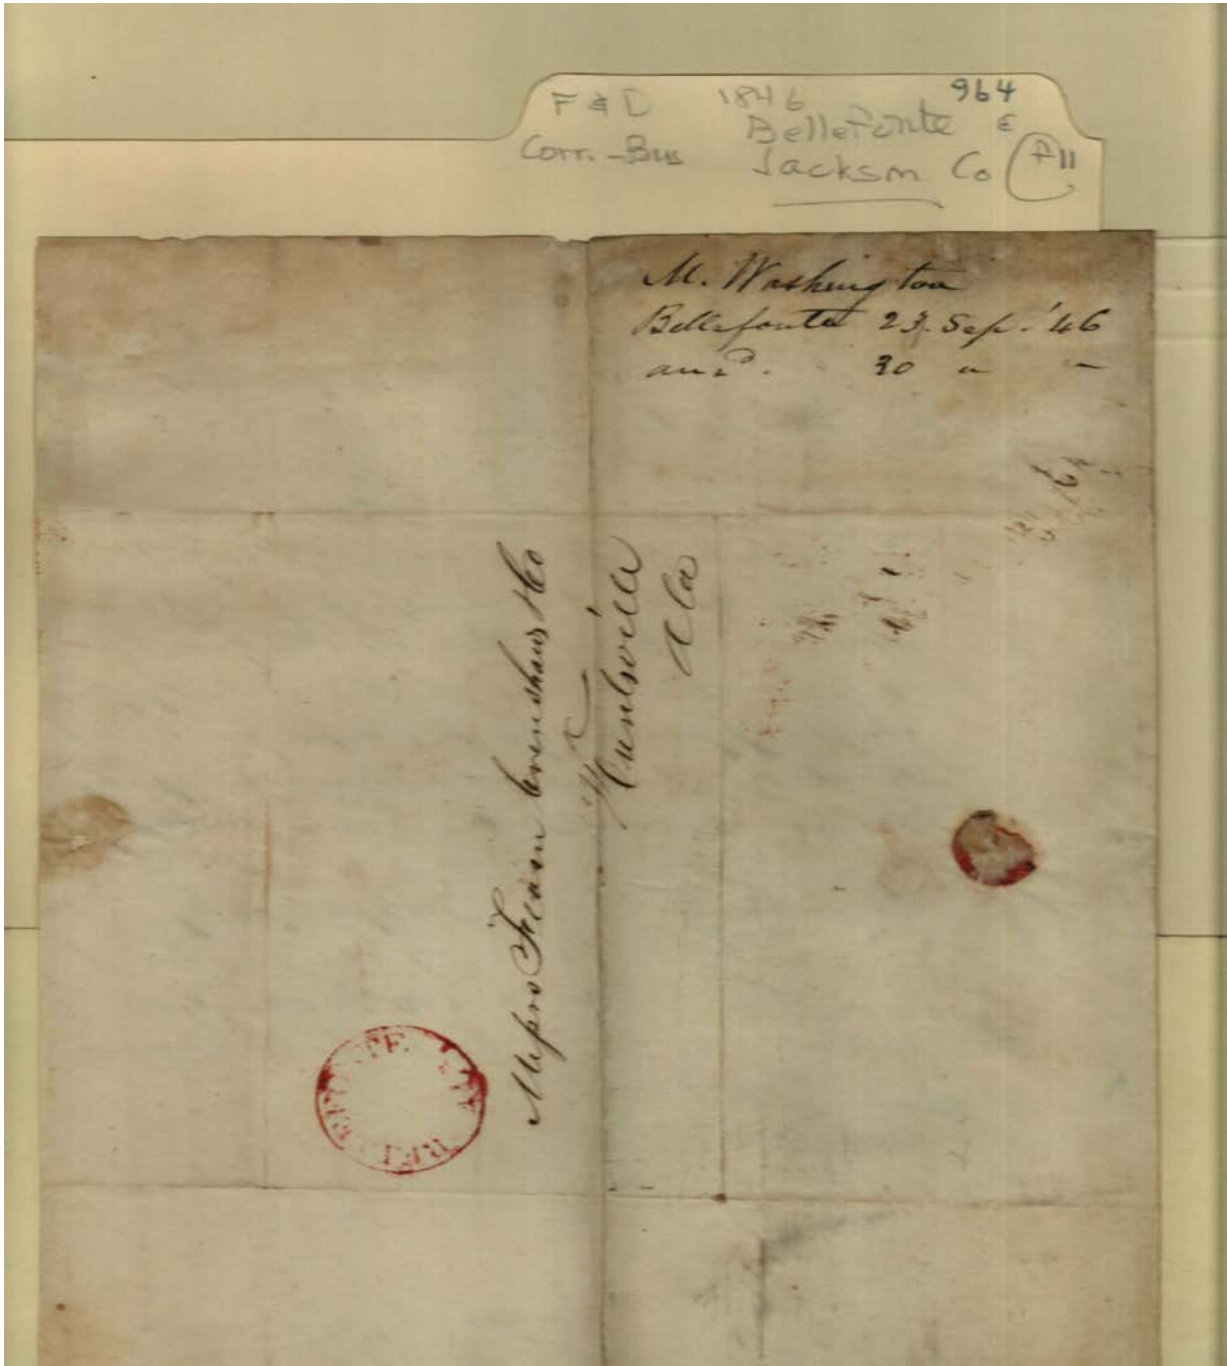 F & D 1846 964
Corr. - Bus Bellefonte
Jackson Co
M. Washington
Bellefonte 23. Sep. '46
ansd. 30 " "
Messrs Fearn Crenshaw & Co
Huntsville
Ala
BELLEFONTE